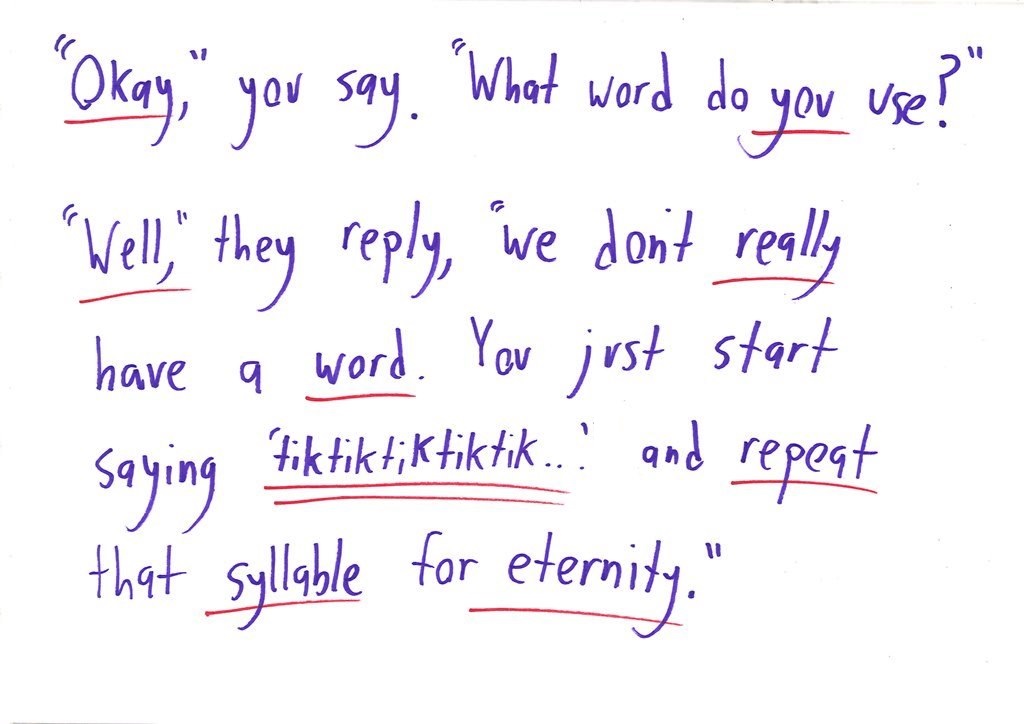 "Okay," you say. "What word do you use?"
"Well," they reply, "we don't really
have a word. You just start
saying 'tiktiktiktiktik...' and repeat
that syllable for eternity."